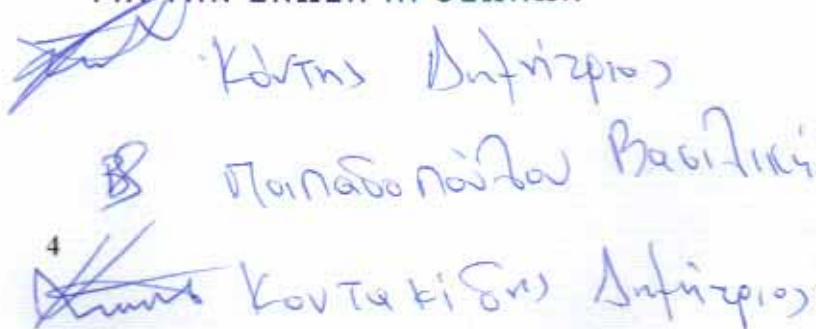 Κόντης Δημήτριος
Παπαδοπούλου Βασιλική
4
Κοντακίδης Δημήτριος